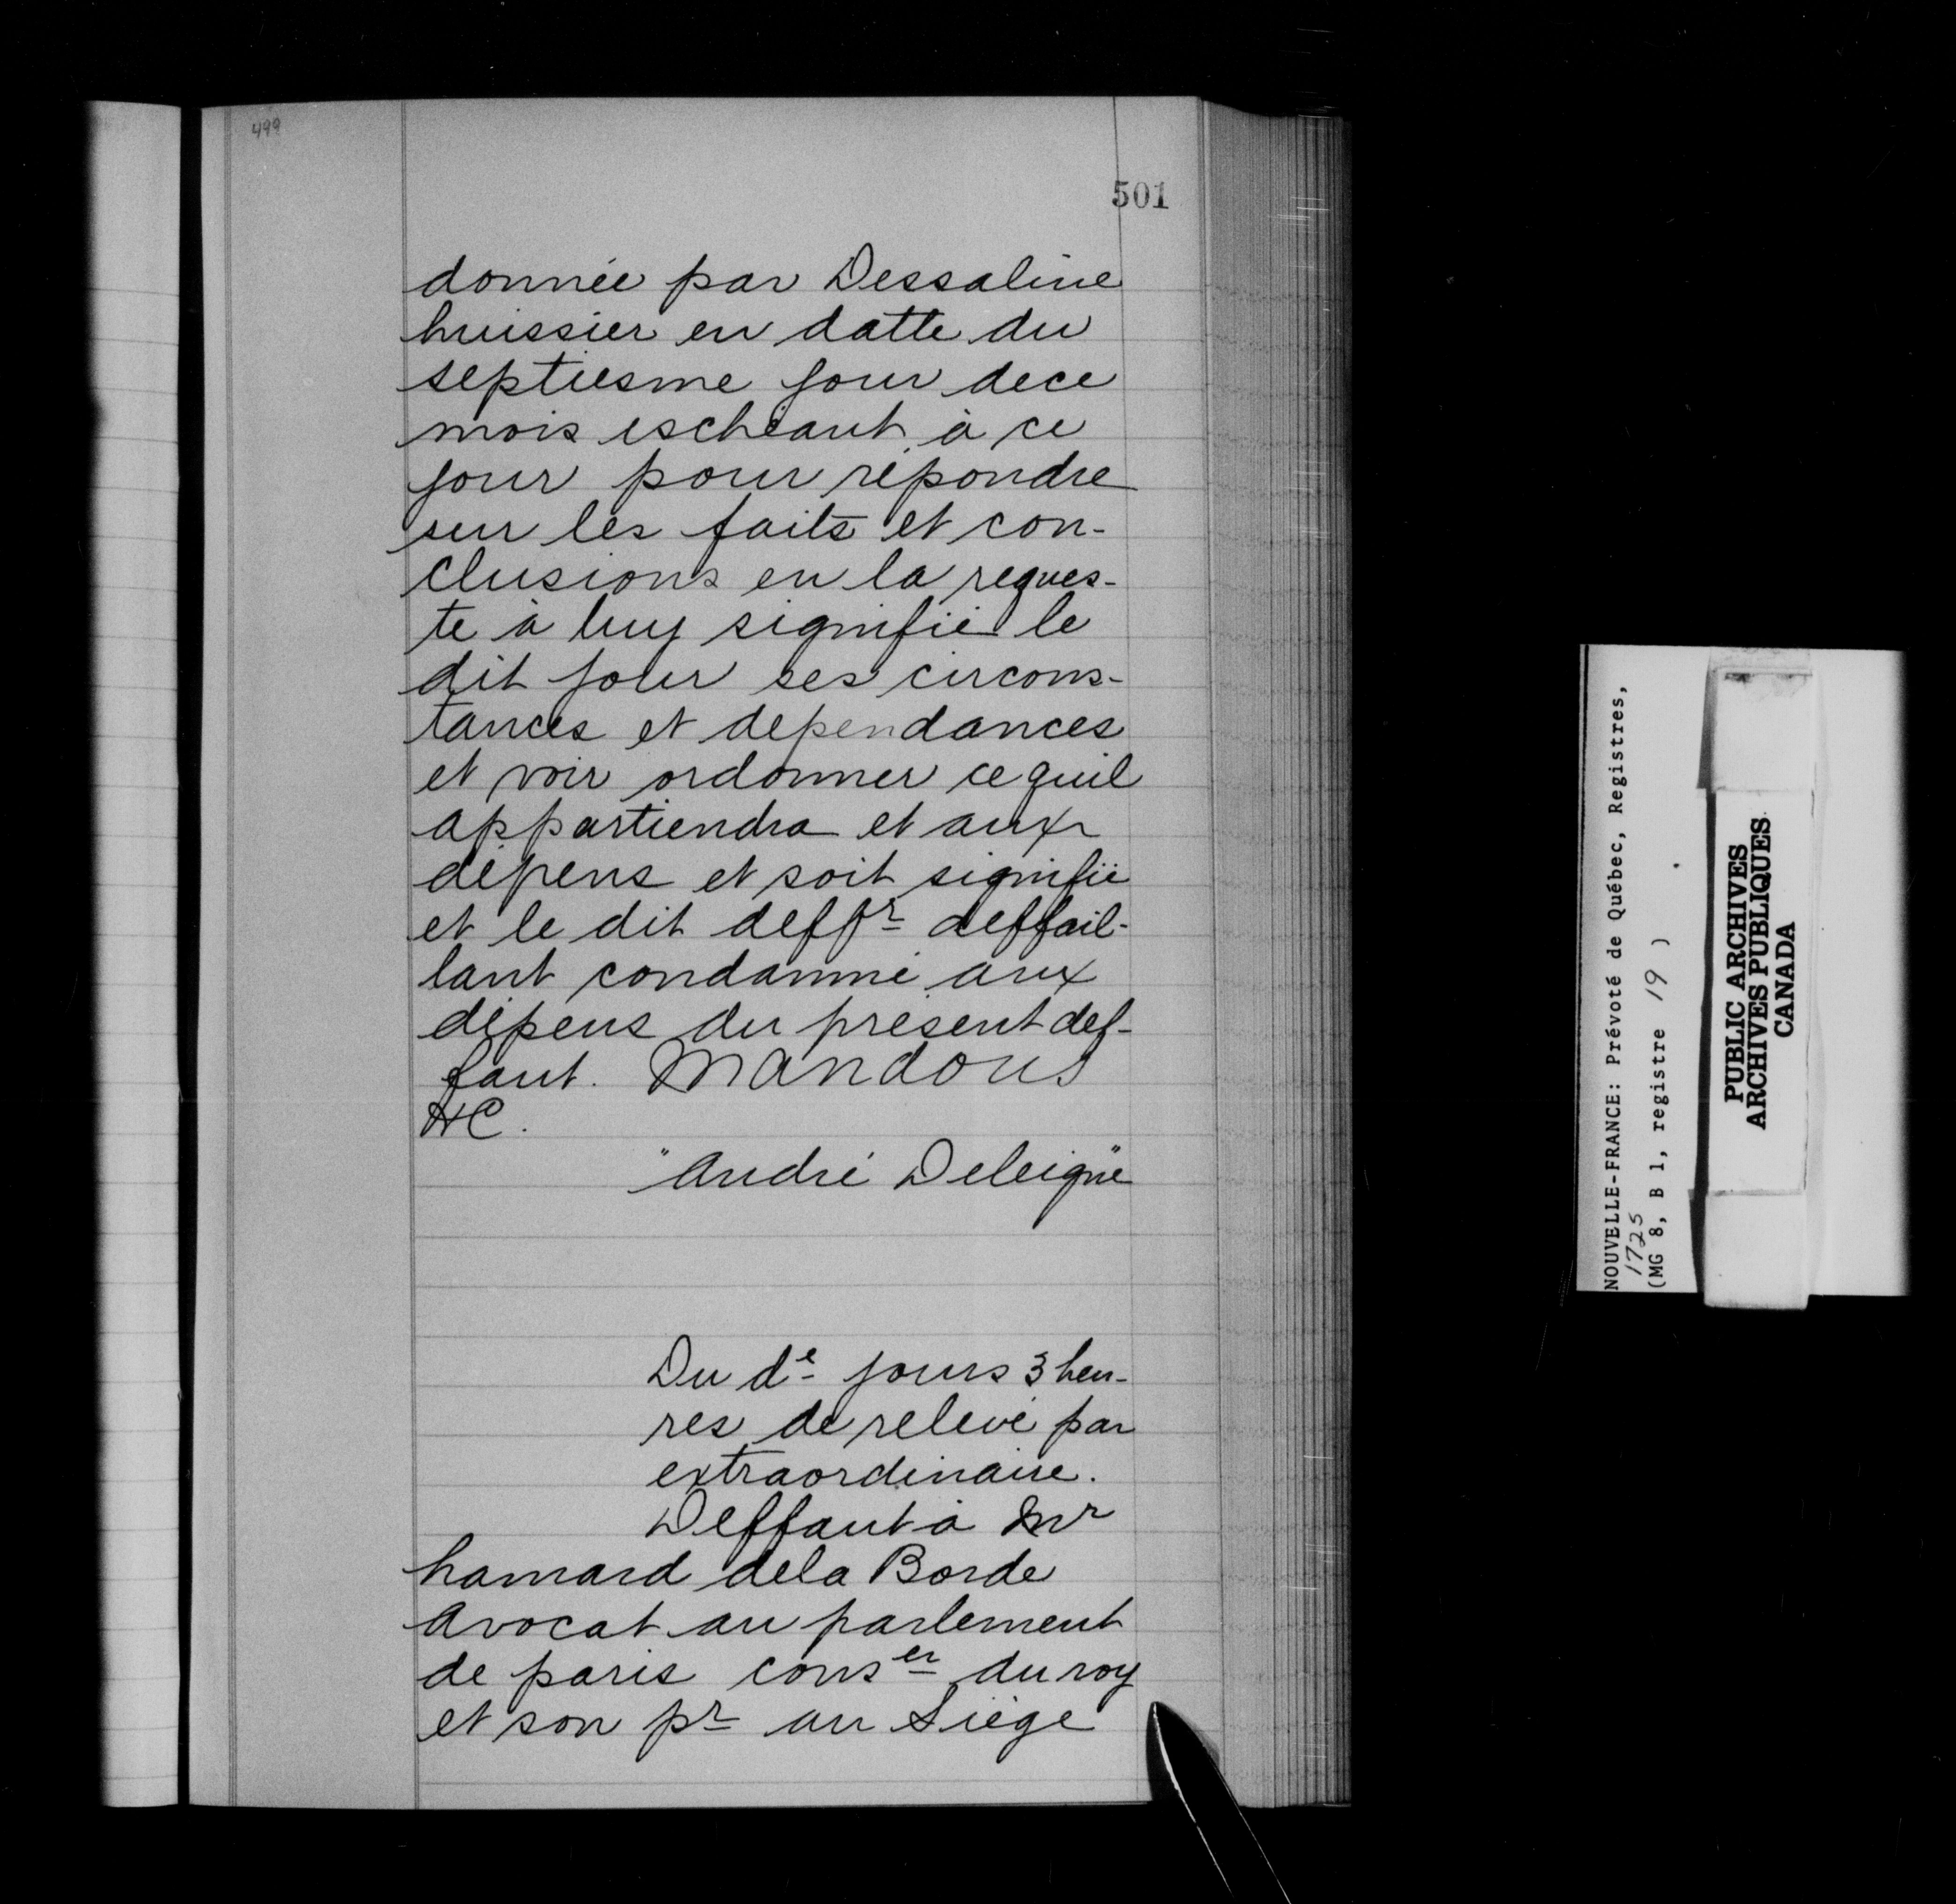 499
501
donnée par Dessaline
huissier en datte du
septiesme jour dece
mois eschéant à ce
jour pour répondre
sur les faits et con-
clusions en la reques-
te à luy signifié le
dit jour ses circons-
tances et dependances
et voir ordonner ce quil
appartiendra et aux
dépens et soit signifié
et le dit deffr deffail-
lant condamné aux
dépens du présent def-
faut. Mandons
&C.
"André Deleigne"
Du de jours 3 heu-
res de relevé par
extraordinaire.
Deffaut à Mr
hamard dela Borde
avocat au parlement
de paris conser du roy
et son pr au Siège
NOUVELLE-FRANCE: Prévoté de Québec, Registres,
1725
(MG 8, B 1, registre 19 )
PUBLIC ARCHIVES
ARCHIVES PUBLIQUES
CANADA